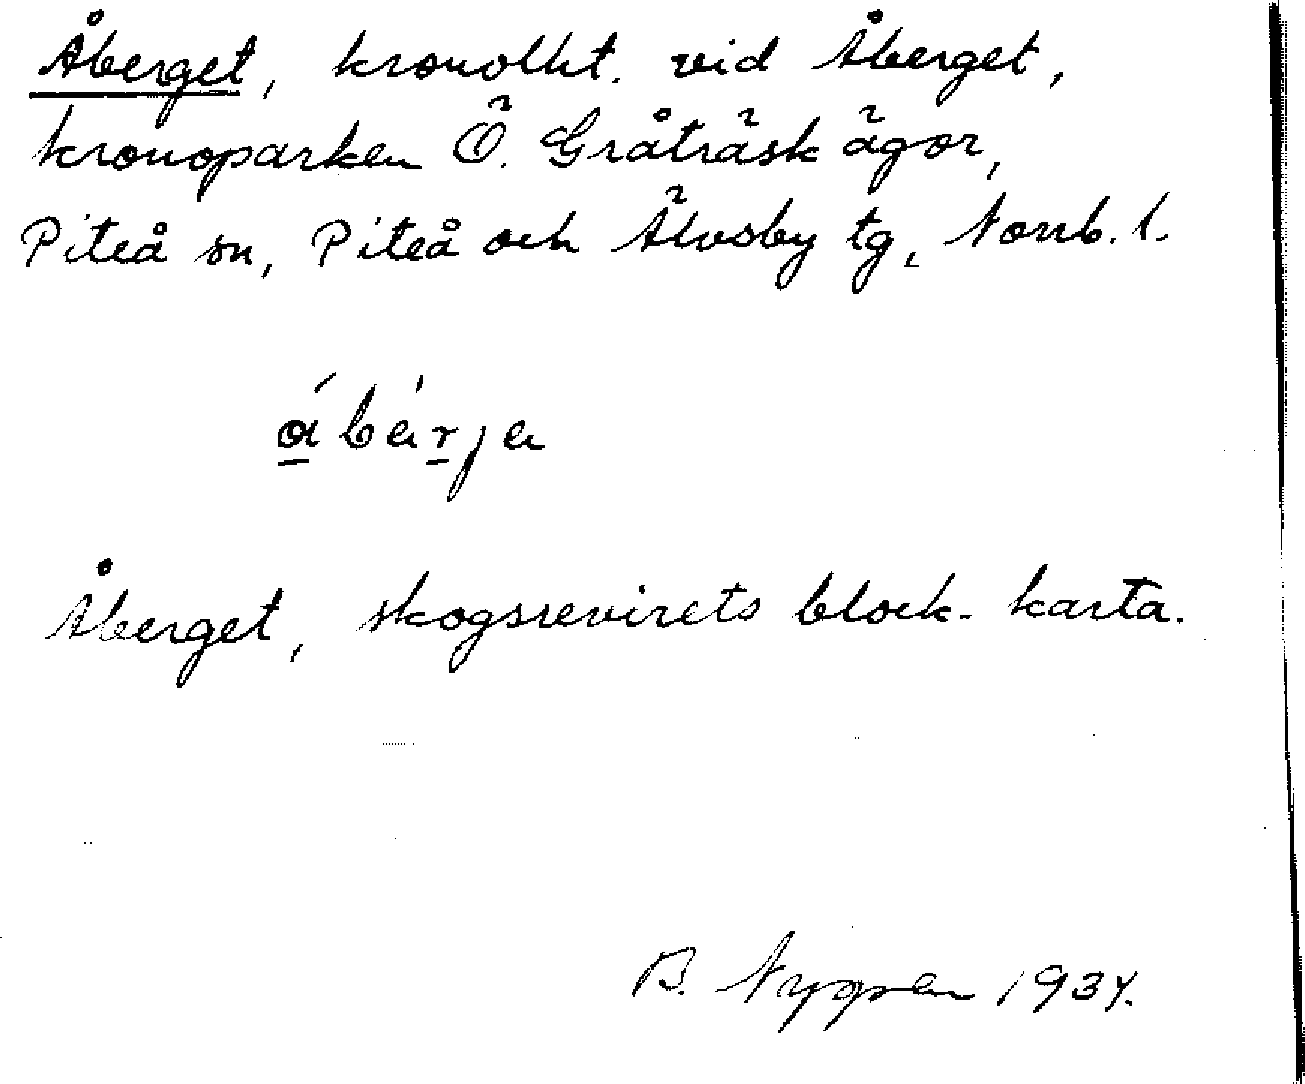 Åberget, kronolht. vid Åberget,
kronoparken Ö. Gråträsk ägor,
Piteå sn, Piteå och Älvsby tg, Norrb. l.
åbärja
Åberget, skogsrevirets block-karta.
B. Nygren 1937.